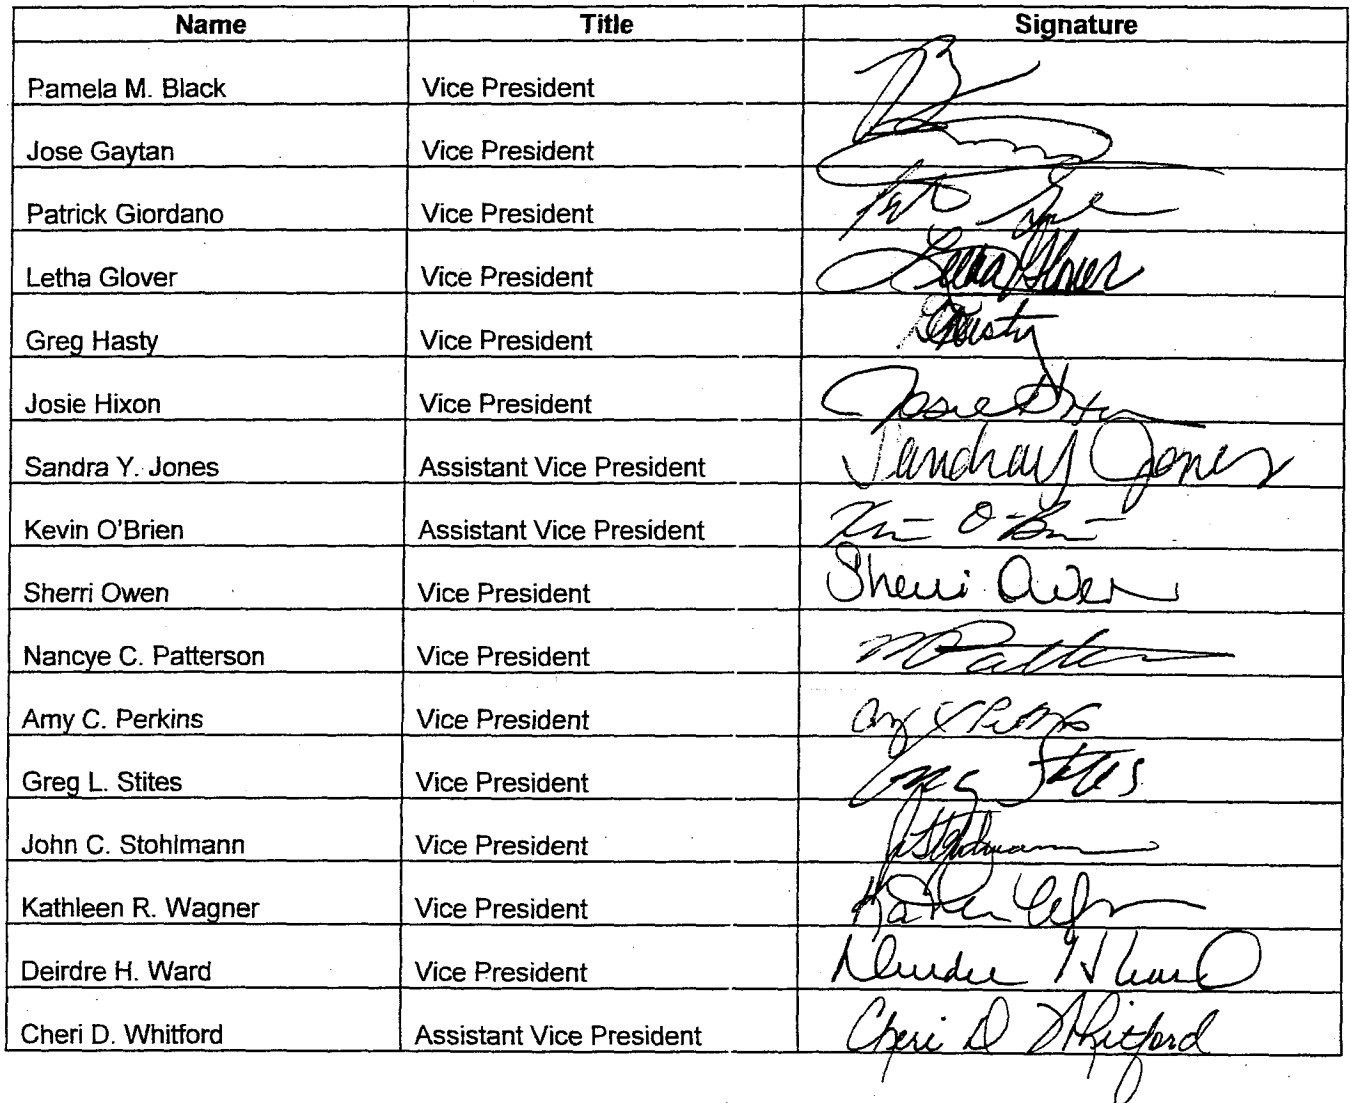 Name Title Signature
Pamela M. Black Vice President
Jose Gaytan Vice President
Patrick Giordano Vice President
Letha Glover Vice President Letha Glover
Greg Hasty Vice President Hasty
Josie Hixon Vice President Josie Hixon
Sandra Y. Jones Assistant Vice President Sandra Y Jones
Kevin O'Brien Assistant Vice President
Sherri Owen Vice President Sherri Owen
Nancye C. Patterson Vice President
Amy C. Perkins Vice President
Greg L. Stites Vice President
John C. Stohlmann Vice President
Kathleen R. Wagner Vice President
Deirdre H. Ward Vice President Deirdre H Ward
Cheri D. Whitford Assistant Vice President Cheri D Whitford